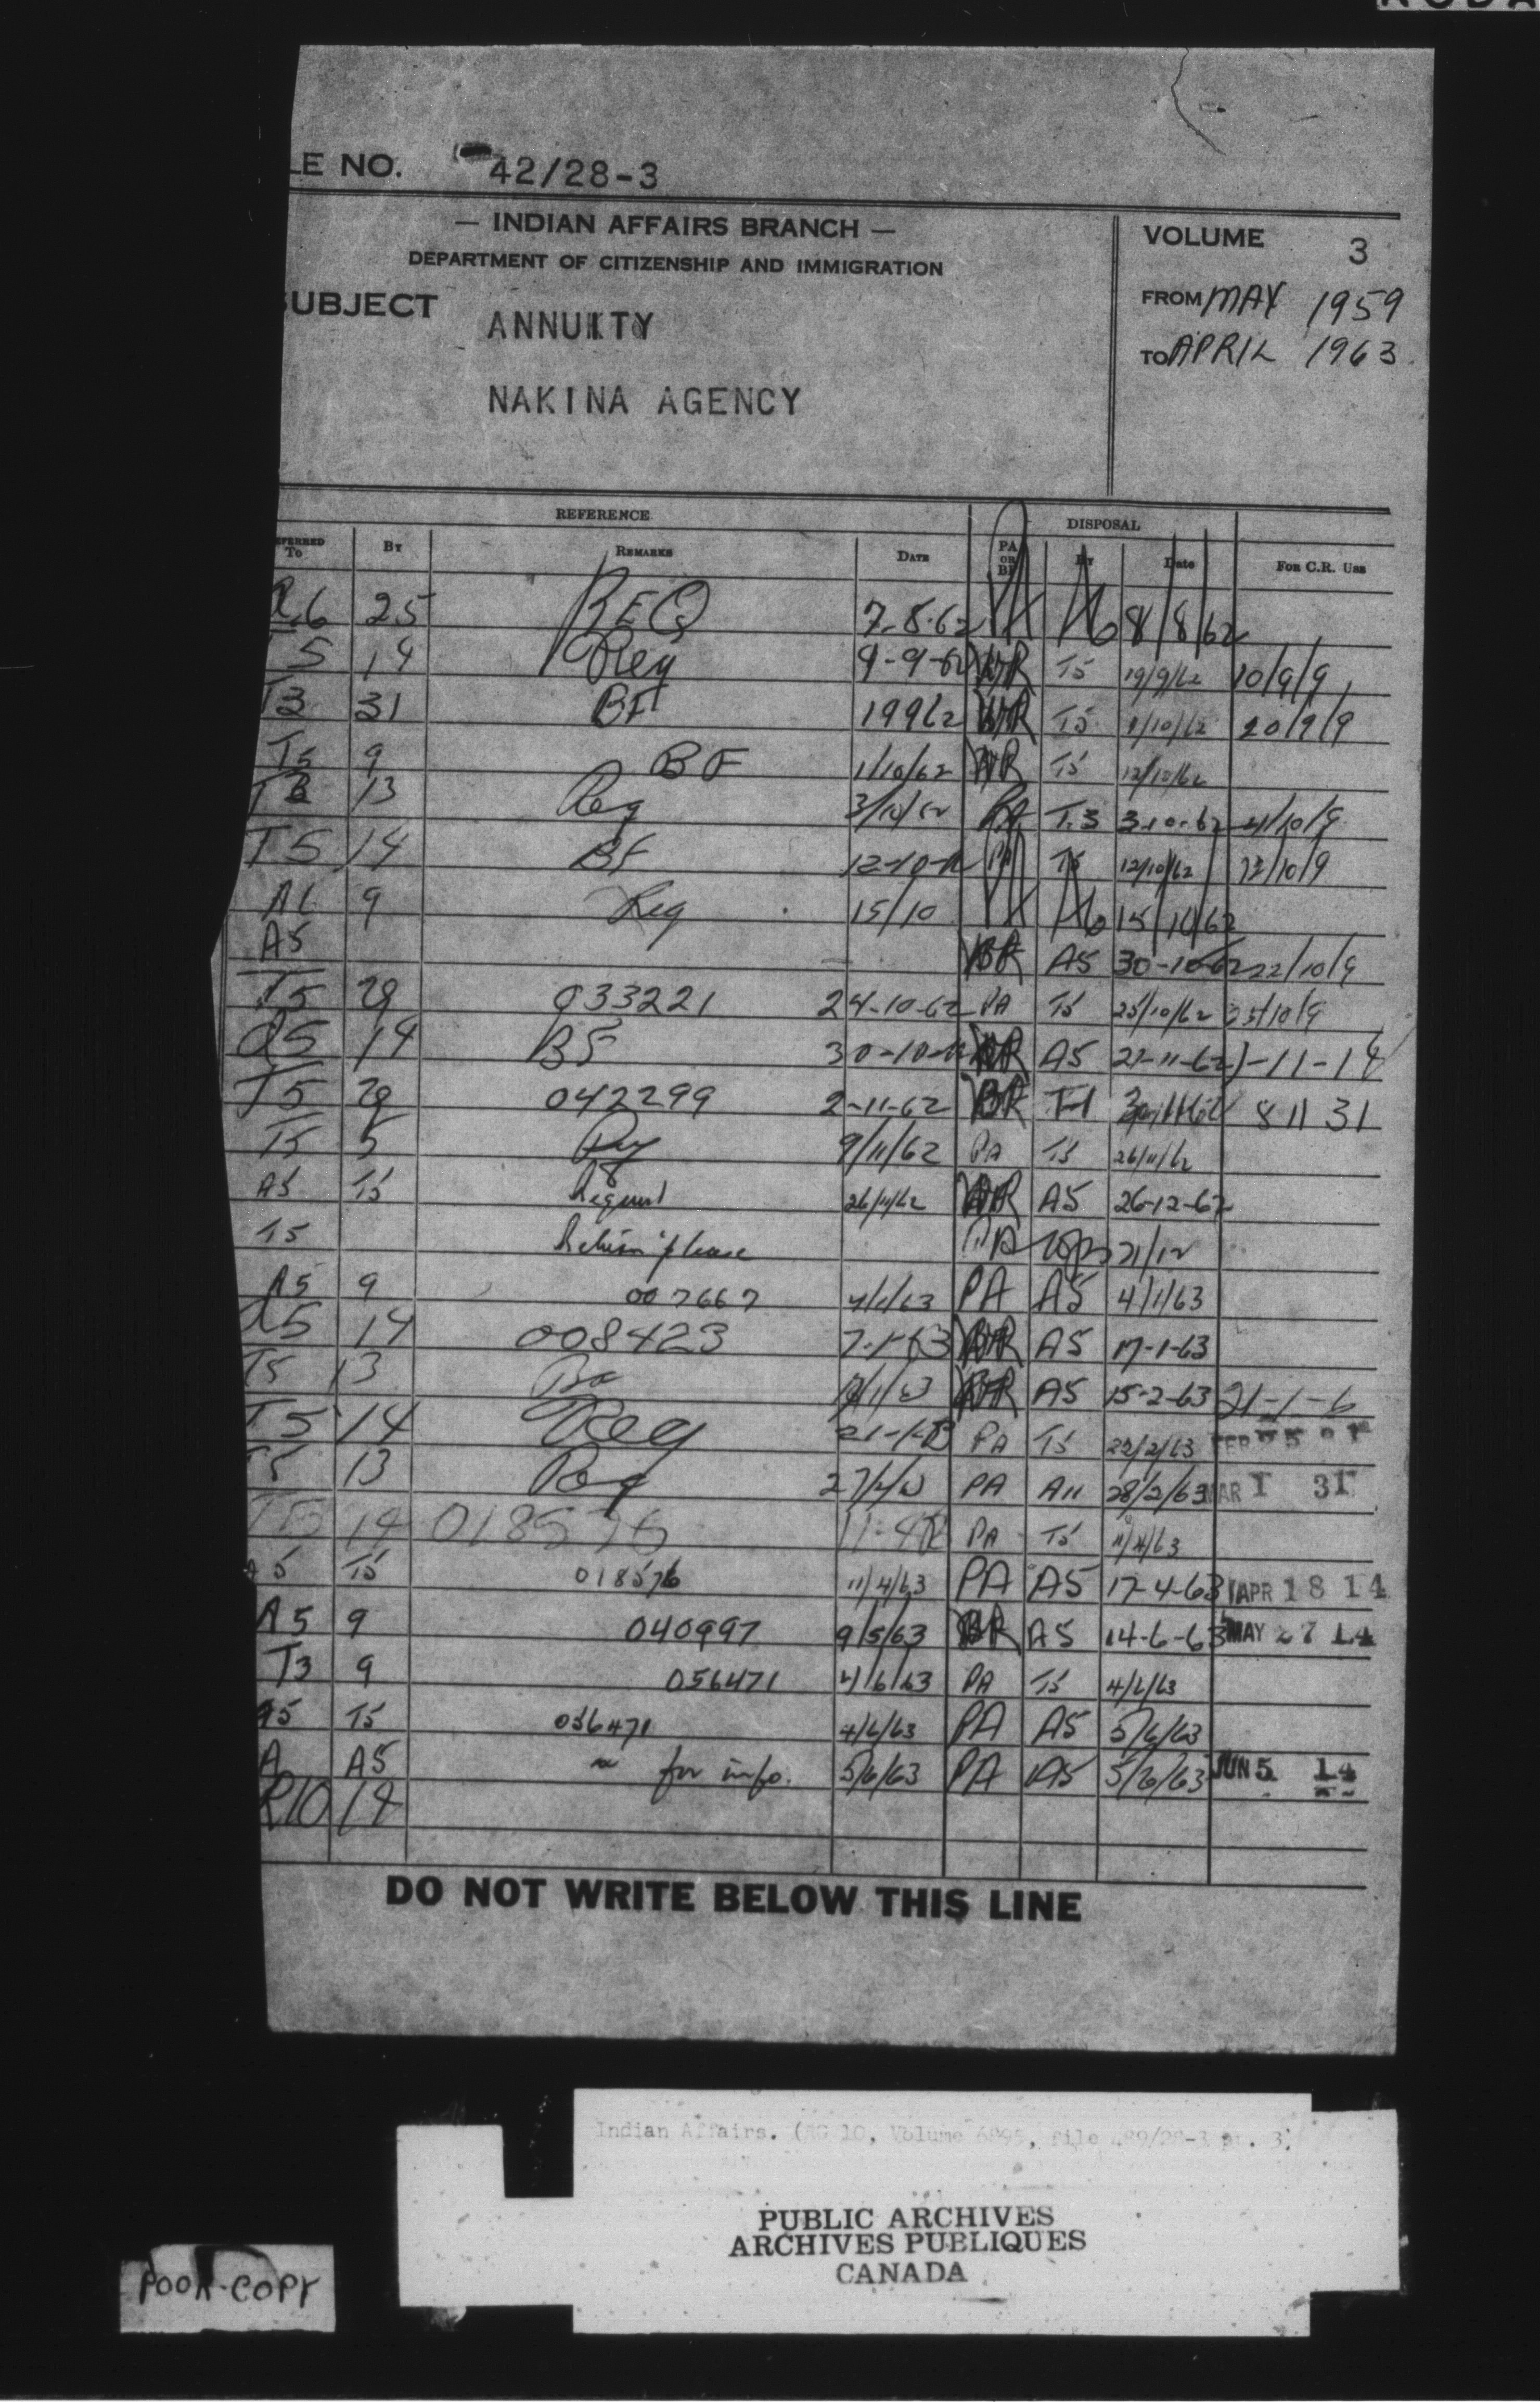 LE NO. 42/28-3
— INDIAN AFFAIRS BRANCH —
DEPARTMENT OF CITIZENSHIP AND IMMIGRATION
VOLUME 3
FROM MAY 1959
TO APRIL 1963
UBJECT ANNUITY
NAKINA AGENCY
REFERENCE DISPOSAL
To By REMARKS DATE PA OR BF By Date FOR C.R. USE
25 REQ 7.8.62 8/8/62
5 14 Req 9-9-62 T5 19/9/62 10/9/9
T3 31 BF 19962 T5 1/10/62 20/9/9
T5 9 BF 1/10/62 T5 12/10/62
13 Req 3/10/62 PA T.3 3-10-62 4/10/9
T5 14 BF 12-10-62 PA T5 12/10/62 12/10/9
A6 9 Req 15/10 15/10/62
A5 A5 30-10-62 22/10/9
T5 29 033221 24-10-62 PA T5 25/10/62 25/10/9
A5 14 BF 30-10-62 A5 27-11-62 1-11-14
T5 29 042299 2-11-62 8 11 31
T5 5 9/11/62 PA T5 26/11/62
A5 T5 Request 26/11/62 A5 26-12-62
T5 Return please PA 21/12
A5 9 007667 4/1/63 PA A5 4/1/63
A5 14 008423 7-1-63 A5 17-1-63
T5 13 A5 15-2-63 21-1-6
T5 14 Req PA T5 22/2/63
13 Req PA A11 28/2/63 MAR 1 31
T5 14 018576 PA T5 11/4/63
A5 T5 018576 11/4/63 PA A5 17-4-63 APR 18 14
A5 9 040997 9/5/63 A5 14-6-63 MAY 27 14
T3 9 056471 4/6/63 PA T5 4/6/63
A5 T5 056471 4/6/63 PA A5 5/6/63
A A5 for info. 5/6/63 PA A5 5/6/63 JUN 5 14
R10 14
DO NOT WRITE BELOW THIS LINE
Indian Affairs. (RG 10, Volume 6895, file 489/28-3 pt. 3)
PUBLIC ARCHIVES
ARCHIVES PUBLIQUES
CANADA
POOR COPY